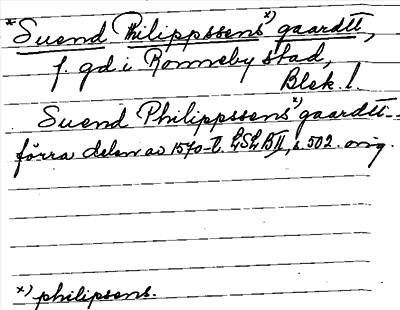 *Suend Philippssens x) gaardtt,
f. gd. i Ronneby stad,
Blek. l.
Suend Philippssens x) gaardtt –
förra delen av 1570-t. LSLB II, s. 502. orig.
x) philipsens.